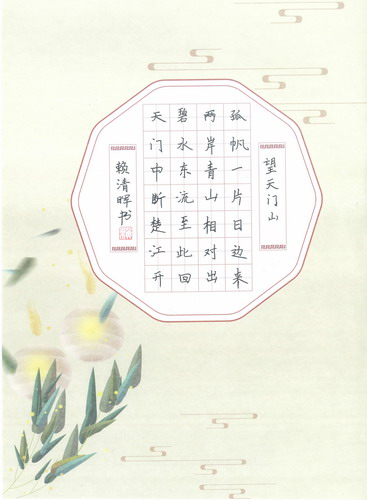 望天门山
天门中断楚江开
碧水东流至此回
两岸青山相对出
孤帆一片日边来
赖清晖书